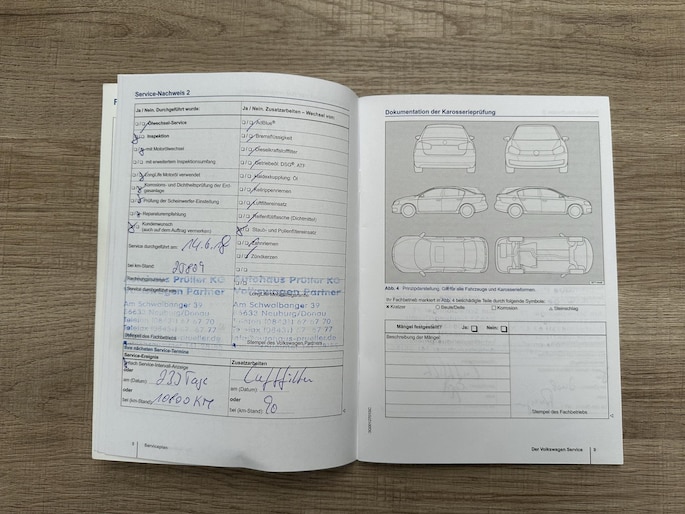 Service-Nachweis 2
Ja / Nein. Durchgeführt wurde:
Ja / Nein. Zusatzarbeiten – Wechsel von:
Ölwechsel-Service
AdBlue®
Inspektion
Bremsflüssigkeit
mit Motorölwechsel
Dieselkraftstofffilter
mit erweitertem Inspektionsumfang
Getriebeöl, DSG®, ATF
LongLife Motoröl verwendet
Haldexkupplung, Öl
Korrosions- und Dichtheitsprüfung der Erdgasanlage
Keilrippenriemen
Prüfung der Scheinwerfer-Einstellung
Luftfiltereinsatz
Reparaturempfehlung
Reifenfüllflasche (Dichtmittel)
Kundenwunsch
(auch auf dem Auftrag vermerken)
Staub- und Pollenfiltereinsatz
Zahnriemen
Zündkerzen
Service durchgeführt am: 14.6.18
bei km-Stand:
Prüller KG
Autohaus Prüller KG
Volkswagen Partner
Am Schwalbanger 39
Am Schwalbanger 39
86633 Neuburg/Donau
86633 Neuburg/Donau
Stempel des Fachbetriebs
Stempel des Volkswagen Partners
Ihre nächsten Service-Termine
Service-Ereignis
Zusatzarbeiten
nach Service-Intervall-Anzeige
Luftfilter
oder
am (Datum)
am (Datum):
oder
oder
bei (km-Stand):
bei (km-Stand): 90
8 Serviceplan
Dokumentation der Karosserieprüfung
Abb. 4 Prinzipdarstellung: Gilt für alle Fahrzeuge und Karosserieformen.
Ihr Fachbetrieb markiert in Abb. 4 beschädigte Teile durch folgende Symbole:
✕ Kratzer ○ Beule/Delle □ Korrosion △ Steinschlag
Mängel festgestellt? Ja: Nein:
Beschreibung der Mängel:
Stempel des Fachbetriebs
Der Volkswagen Service 9